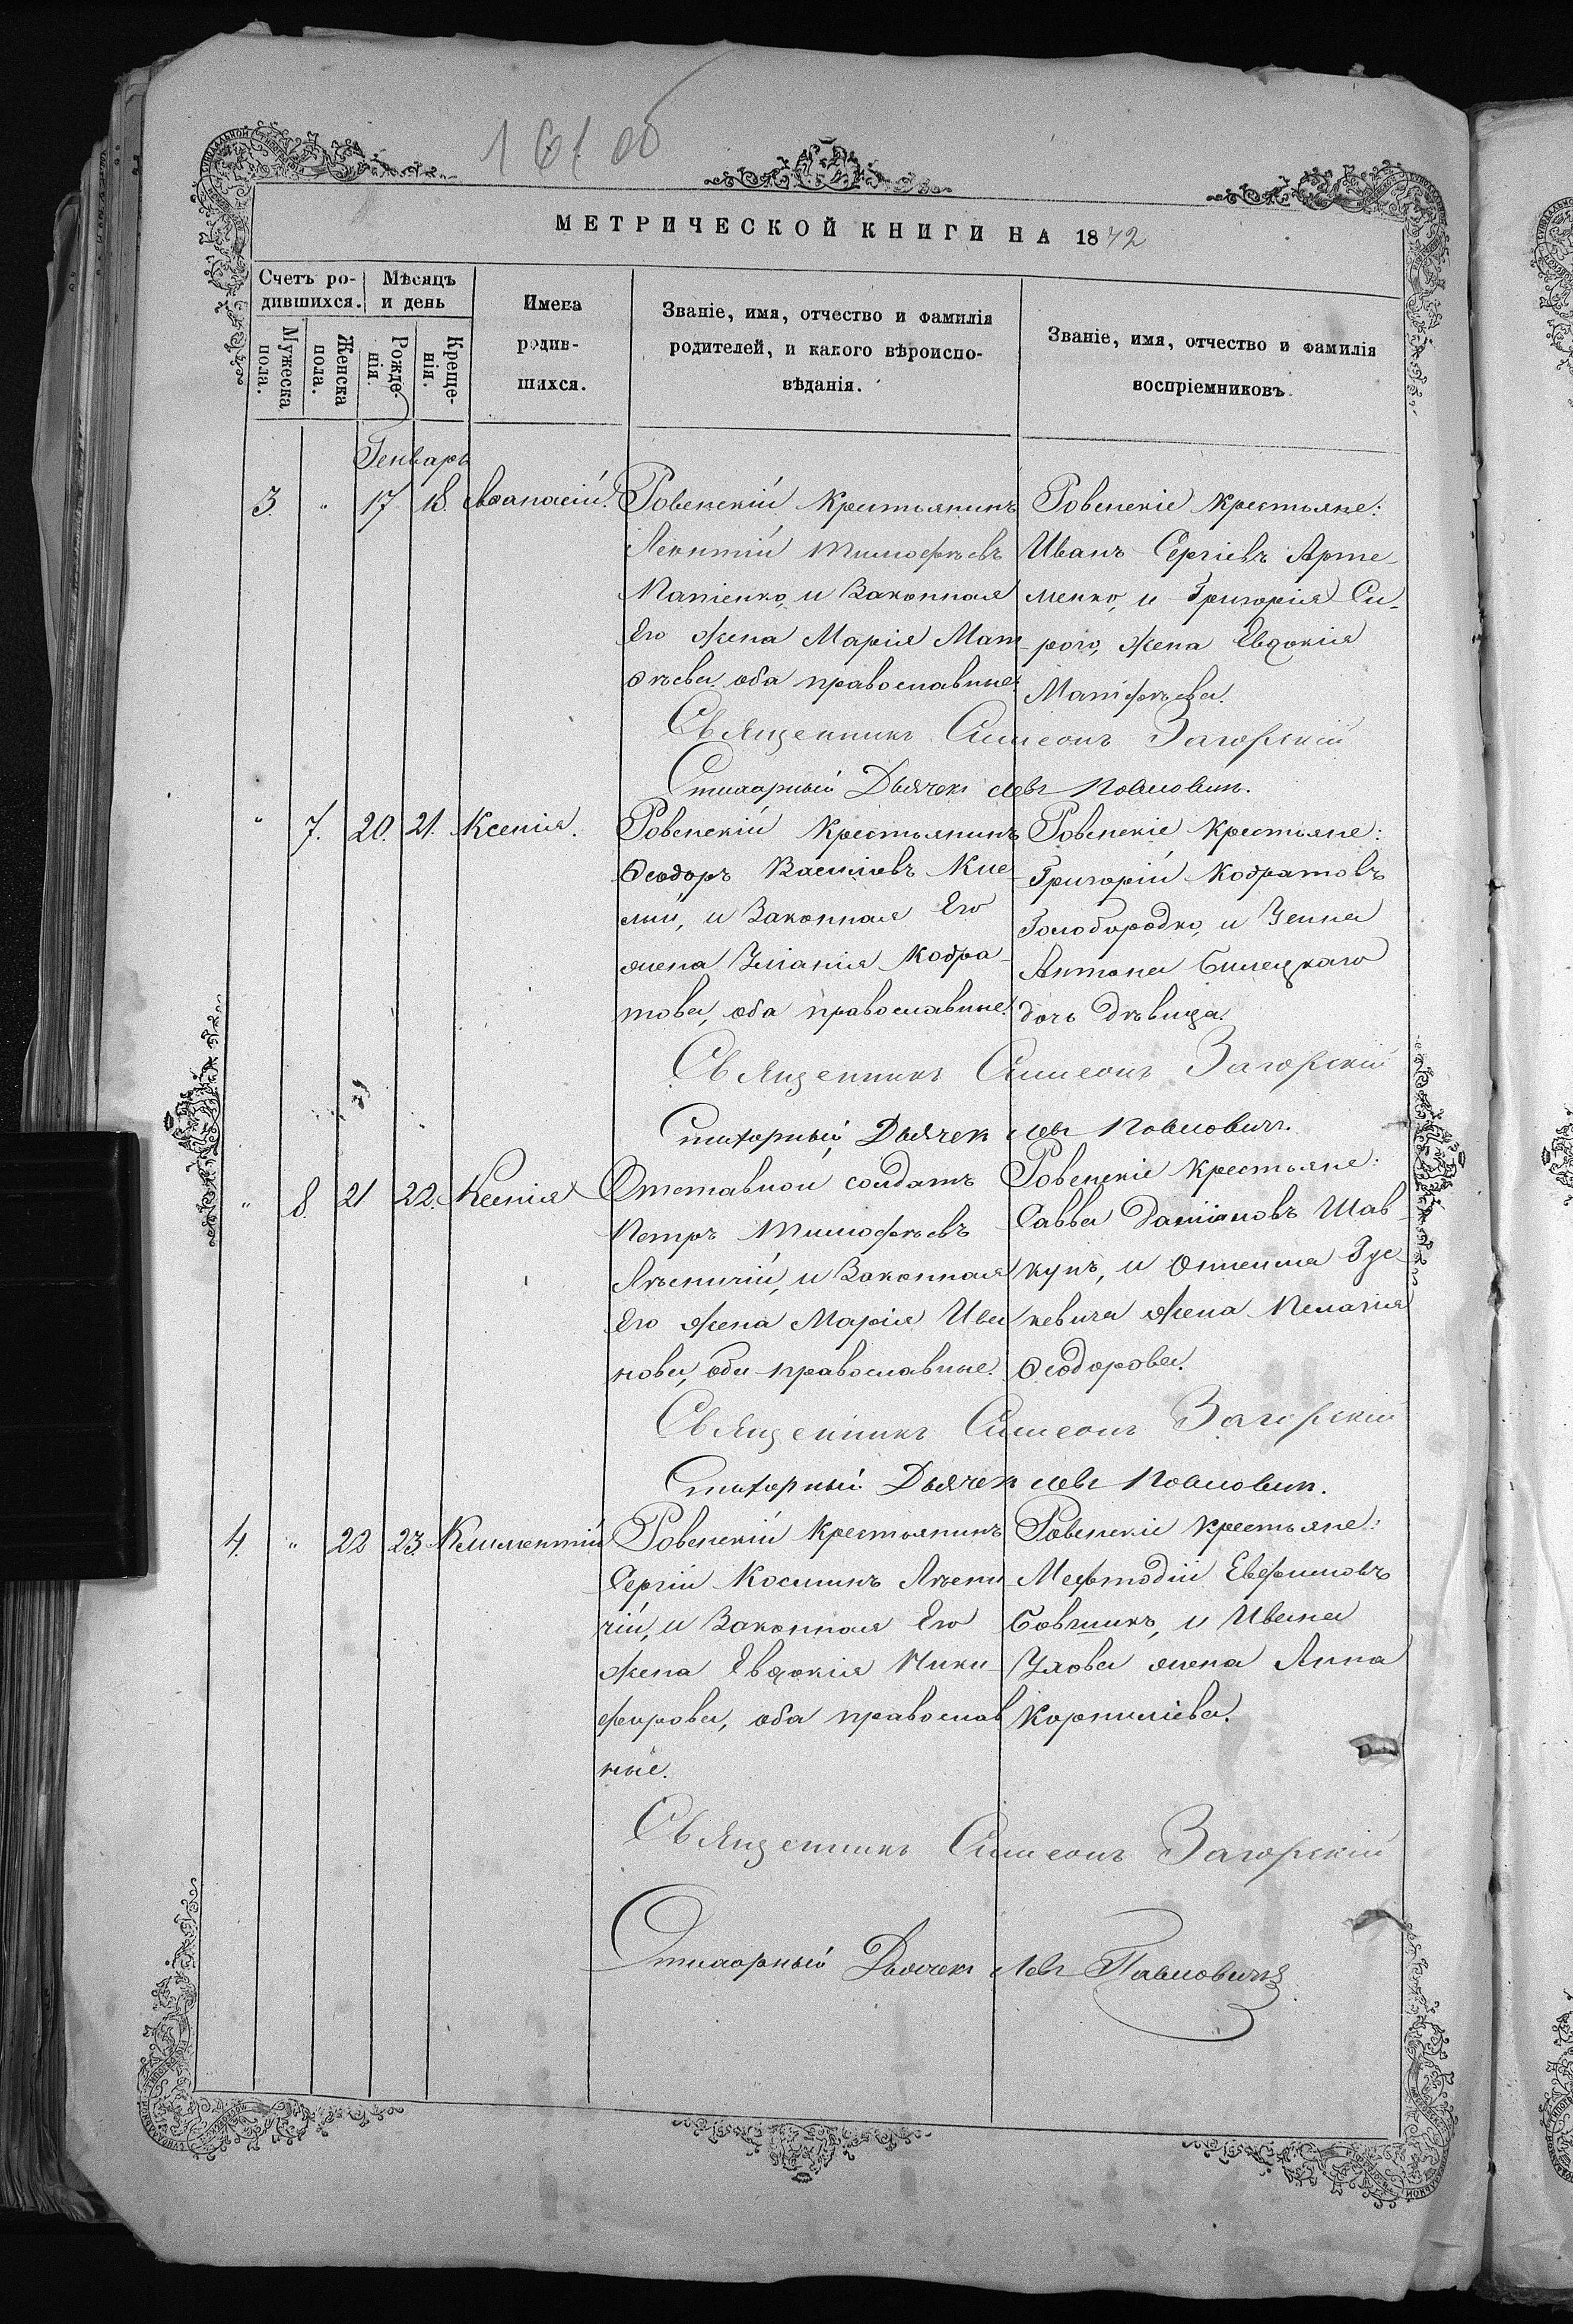 161 об
МЕТРИЧЕСКОЙ КНИГИ НА 1872
Счетъ ро-
дившихся.
Мѣсяцъ
и день
Имена
родив-
шихся.
Званіе, имя, отчество и фамилія
родителей, и какого вѣроиспо-
вѣданія.
Званіе, имя, отчество и фамилія
воспріемниковъ.
Мужеска
пола.
Женска
пола.
Рожде-
нія.
Креще-
нія.
Генварь
3. " 17. 18. Аѳанасій.
Ровенскій Крестьянинъ
Леонтій Тимофѣевъ
и Законная
Его жена Марія Мат
ѳѣева. оба православные.
Ровенскіе Крестьяне:
Иванъ Сергіевъ Арте-
менко, и Григорія Си-
рого, жена Евдокія
Матфѣева.
Священникъ Симеонъ Загорскій
Стихарный Дьячекъ Левъ Павловичъ.
" 7. 20. 21. Ксенія.
Ровенскій Крестьянинъ
Ѳеодоръ Василіевъ Кис
лий, и Законная Его
жена Уліанія Кодра-
това, оба православные.
Ровенскіе Крестьяне:
Григорій Кодратовъ
Голобородко, и
Антона Билецкаго
дочь дѣвица.
Священникъ Симеонъ Загорскій
Стихарный Дьячек Левъ Павловичъ.
" 8. 21 22. Ксенія
Отставной солдатъ
Петръ Тимофѣевъ
Лѣсничій, и Законная
Его жена Марія Ива
нова, оба православные.
Ровенскіе Крестьяне:
Савва Даміановъ Шав-
кунъ, и Гус
кевича жена Пелагія
Ѳеодорова.
Священникъ Симеонъ Загорскій
Стихарный Дьячек Левъ Павловичъ.
4. " 22 23. Климентій
Ровенскій Крестьянинъ
Сергій Косминъ Лѣсни
чій, и Законная Его
жена Евдокія Ники-
форова, оба православ
ные.
Ровенскіе Крестьяне:
Мефтодій Евфимовъ
и Ивана
жена Анна
Корниліева.
Священникъ Симеонъ Загорскій
Стихарный Дьячекъ Левъ Павловичъ